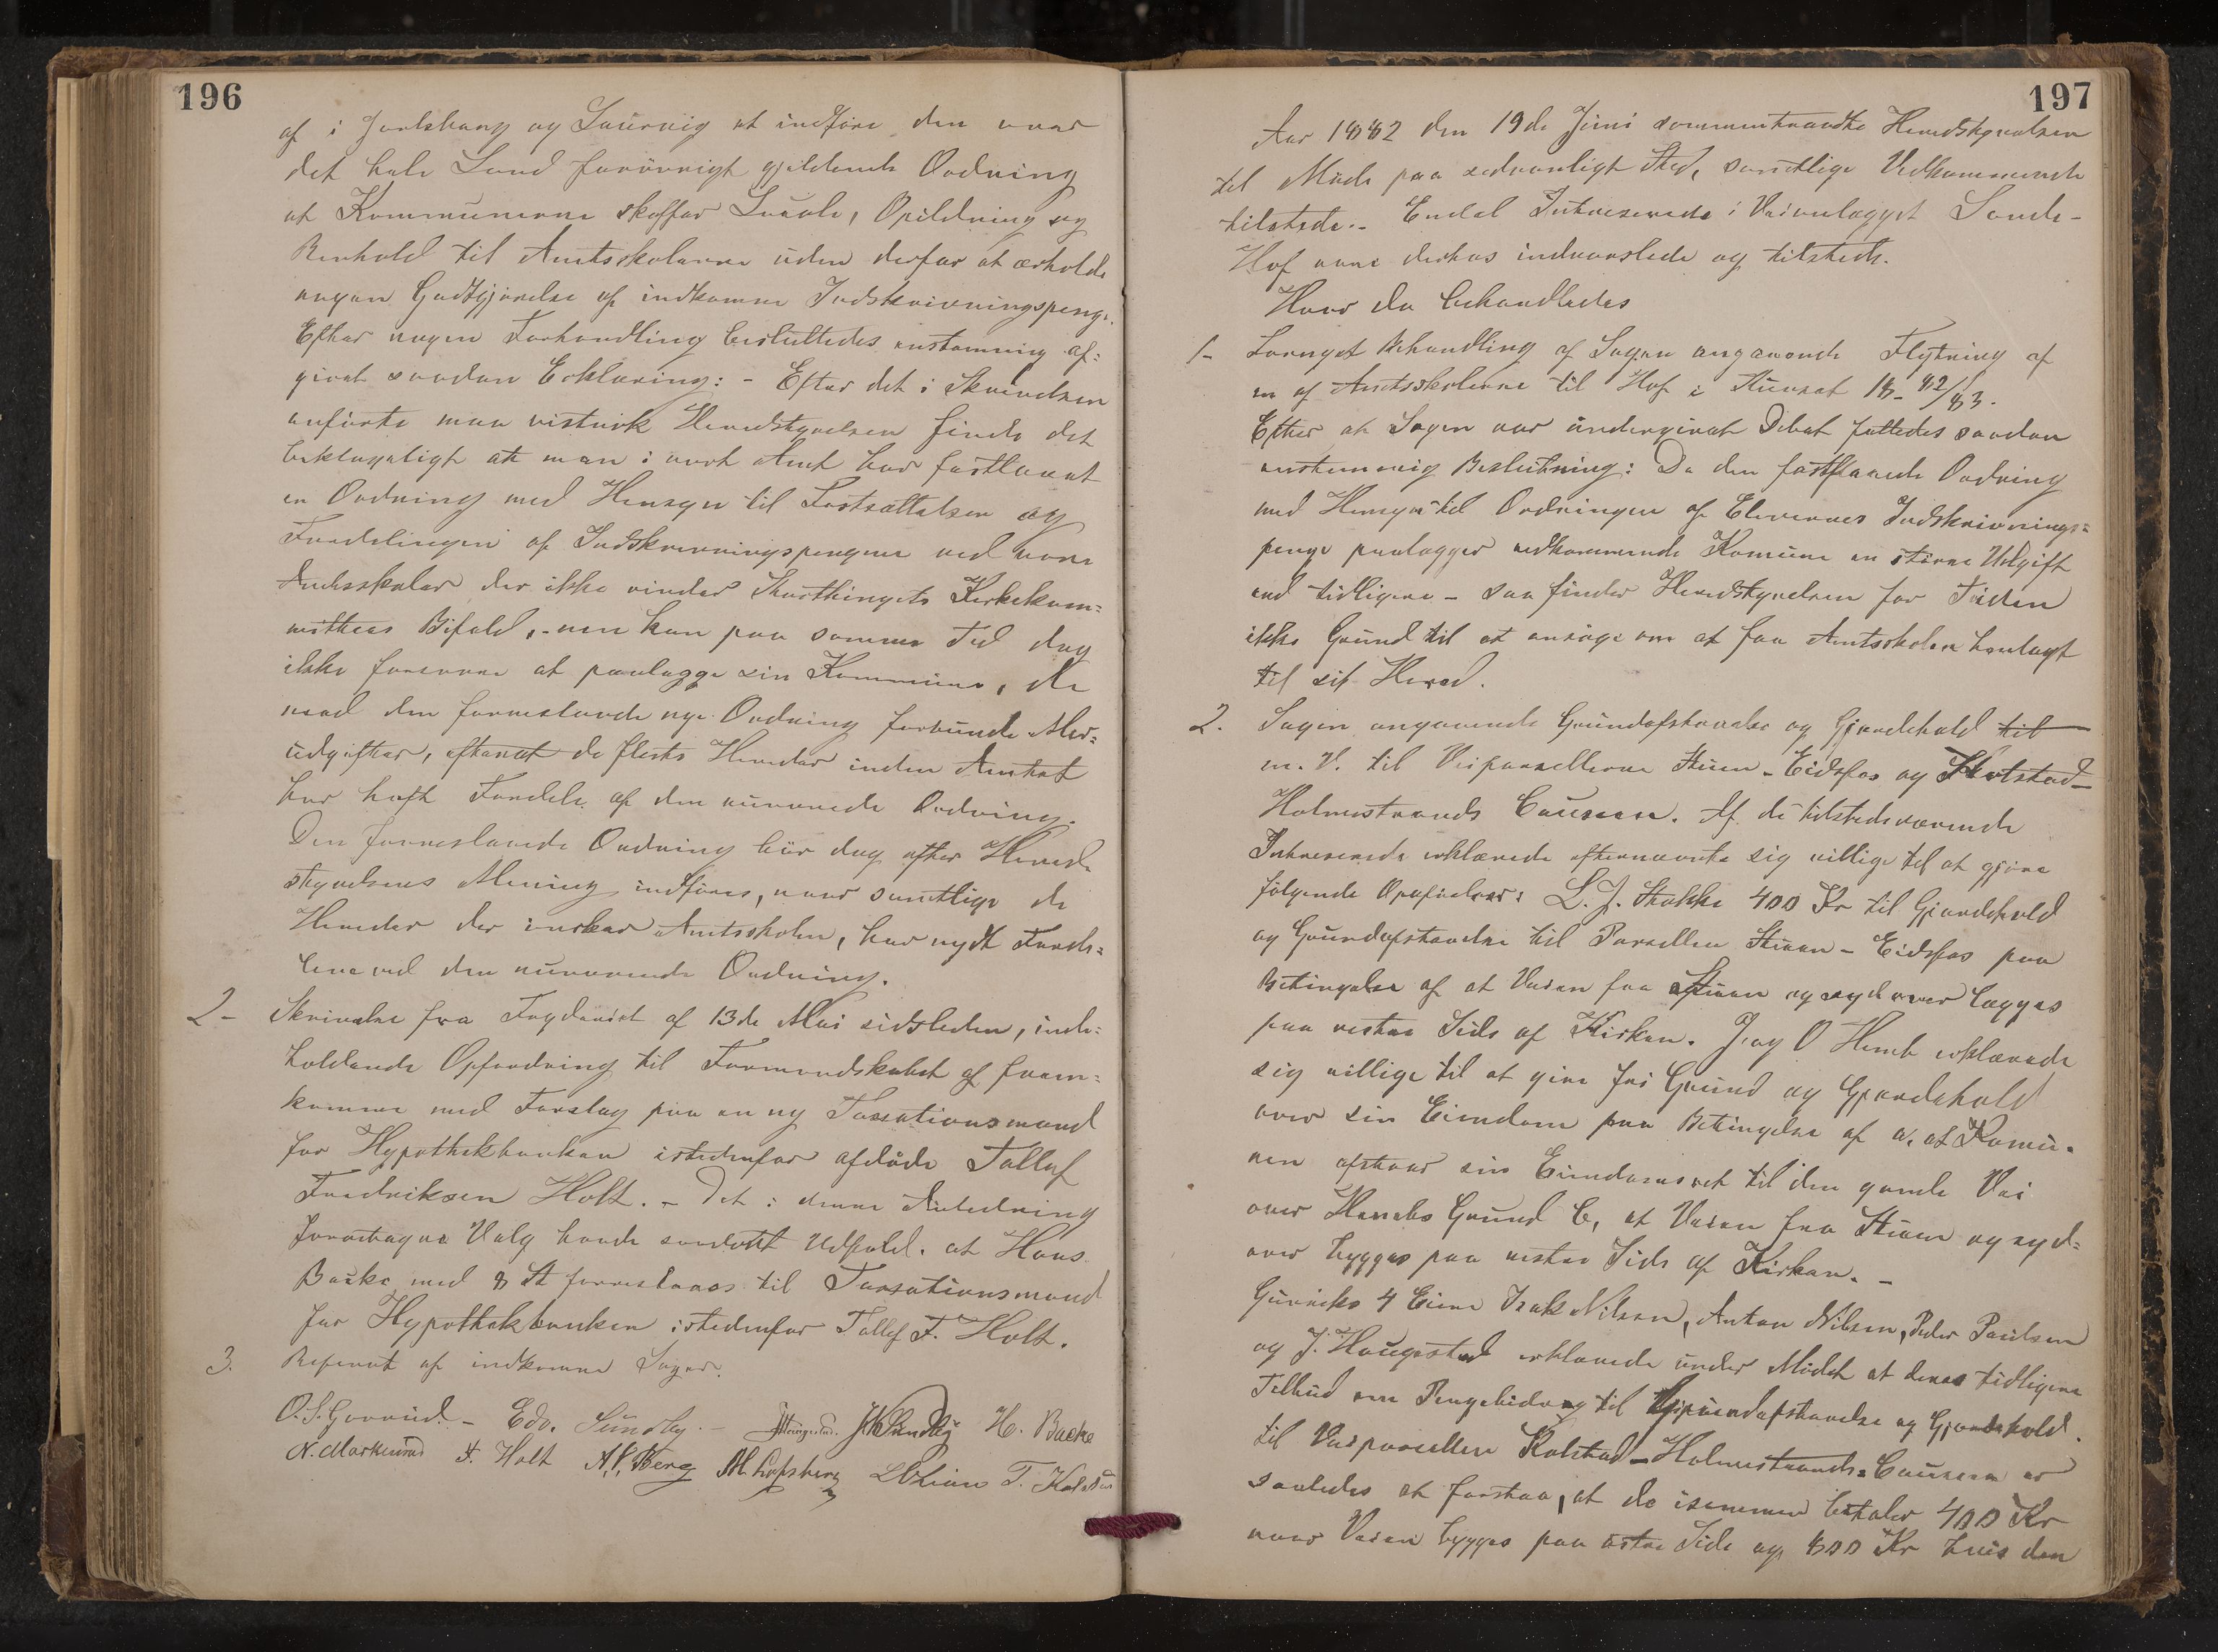 196
af i Jarlsberg og Laurvig at indføre den over
det hele Land forøvrigt gjeldende Ordning
at Kommunerne skaffer Locale, Opildning og
Renhold til Amtsskolerne uden derfor at erholde
nogen Godtgjørelse af indkomne Indskrivningspenge.
Efter nogen Forhandling besluttedes enstemmig af-
givet saadan Erklæring: - Efter det i Skrivelsen
anførte maa vistnok Herredstyrelsen finde det
beklageligt at man i vort Amt har fastlavet
en Ordning med Hensyn til Fastsættelsen og
Fordelingen af Indskrivningspengene ved vore
Amtsskoler der ikke vinder Storthingets Kirkekom-
mittees Bifald, - men kan paa samme Tid dog
ikke forsvare at paalægge sin Kommune, de
med den foreslaaede nye Ordning forbundne Mer-
udgifter, efterat de fleste Herreder inden Amtet
har havt Fordele af den nuværende Ordning.
Den foreslaaede Ordning bør dog efter Herred-
styrelsens Mening indføres, naar samtlige de
Herreder der ønsker Amtsskolen, har nydt Forde-
lene ved den nuværende Ordning.
2- Skrivelse fra Fogderiet af 13de Mai sidstleden, inde-
holdende Opfordring til Formandskabet at frem-
komme med Forslag paa en ny Taxationsmand
for Hypothekbanken istedenfor afdøde Tollef
Fredriksen Holt. - Det i denne Anledning
foretagne Valg havde saadant Udfald. at Hans
Backe med 8 St foreslaaes til Taxationsmand
for Hypothekbanken istedenfor Tollef F. Holt.
3. Referat af indkomne Sager.
O. S. Grorud. - Edv. Sundby. - J Haugestad. J H Sundby H. Backe
N. Markerud F. Holt A. P. Berg M. Lofsberg L Klien T. Kolstad
197
Aar 1882 den 19de Juni sammentraadte Herredstyrelsen
til Møde paa sedvanligt Sted, samtlige Vedkommende
tilstede. - Endel Interesserede i Veianlægget Sande-
Hof vare derhos indvarslede og tilstede.
Hvor da behandledes
1- Fornyet Behandling af Sagen angaaende Flytning af
en af Amtsskolerne til Hof i Kurset 18 82/83.
Efter at Sagen var undergivet Debat fattedes saadan
enstemmig Beslutning: Da den fastslaaede Ordning
med Hensyn til Ordningen af Elevernes Indskrivnings-
penge paalægger vedkommende Komune en større Udgift
end tidligere - saa finder Herredstyrelsen for Tiden
ikke Grund til at ansøge om at faa Amtsskolen henlagt
til sit Herred.
2. Sagen angaaende Grundafstaaelse og Gjerdehold til
m. V. til Veiparsellerne Stuen - Eidsfos og Kolstad -
Holmestrands Causeen. Af de tilstedeværende
Interesserede erklærede efternævnte sig villige til at gjøre
følgende Opofrelser: L. J. Stakke 400 Kr til Gjerdehold
og Grundafstaaelse til Parsellen Stuen - Eidsfos paa
Betingelse af at Veien fra Stuen og sydover lægges
paa vestre Side af Kirken. J. og O Hemb erklærede
sig villige til at give fri Grund og Gjerdehold
over sin Eiendom paa Betingelse af a, at Komu-
nen afstaar sin Eiendomsret til den gamle Vei
over Hembs Grund b, at Veien fra Stuen og syd-
over bygges paa vestre Side af Kirken. -
Gunneks 4 Eiere Isak Nilsen, Anton Nilsen, Peder Paulsen
og J. Haugestad erklærede under Mødet at deres tidligere
Tilbud om Pengebidrag til Grundafstaaelse og Gjerdehold
til Veiparsellen Kolstad - Holmestrands-Causeen er
saaledes at forstaa, at de isammen betaler 400 Kr
naar Veien bygges paa østre Side og 800 Kr hvis den